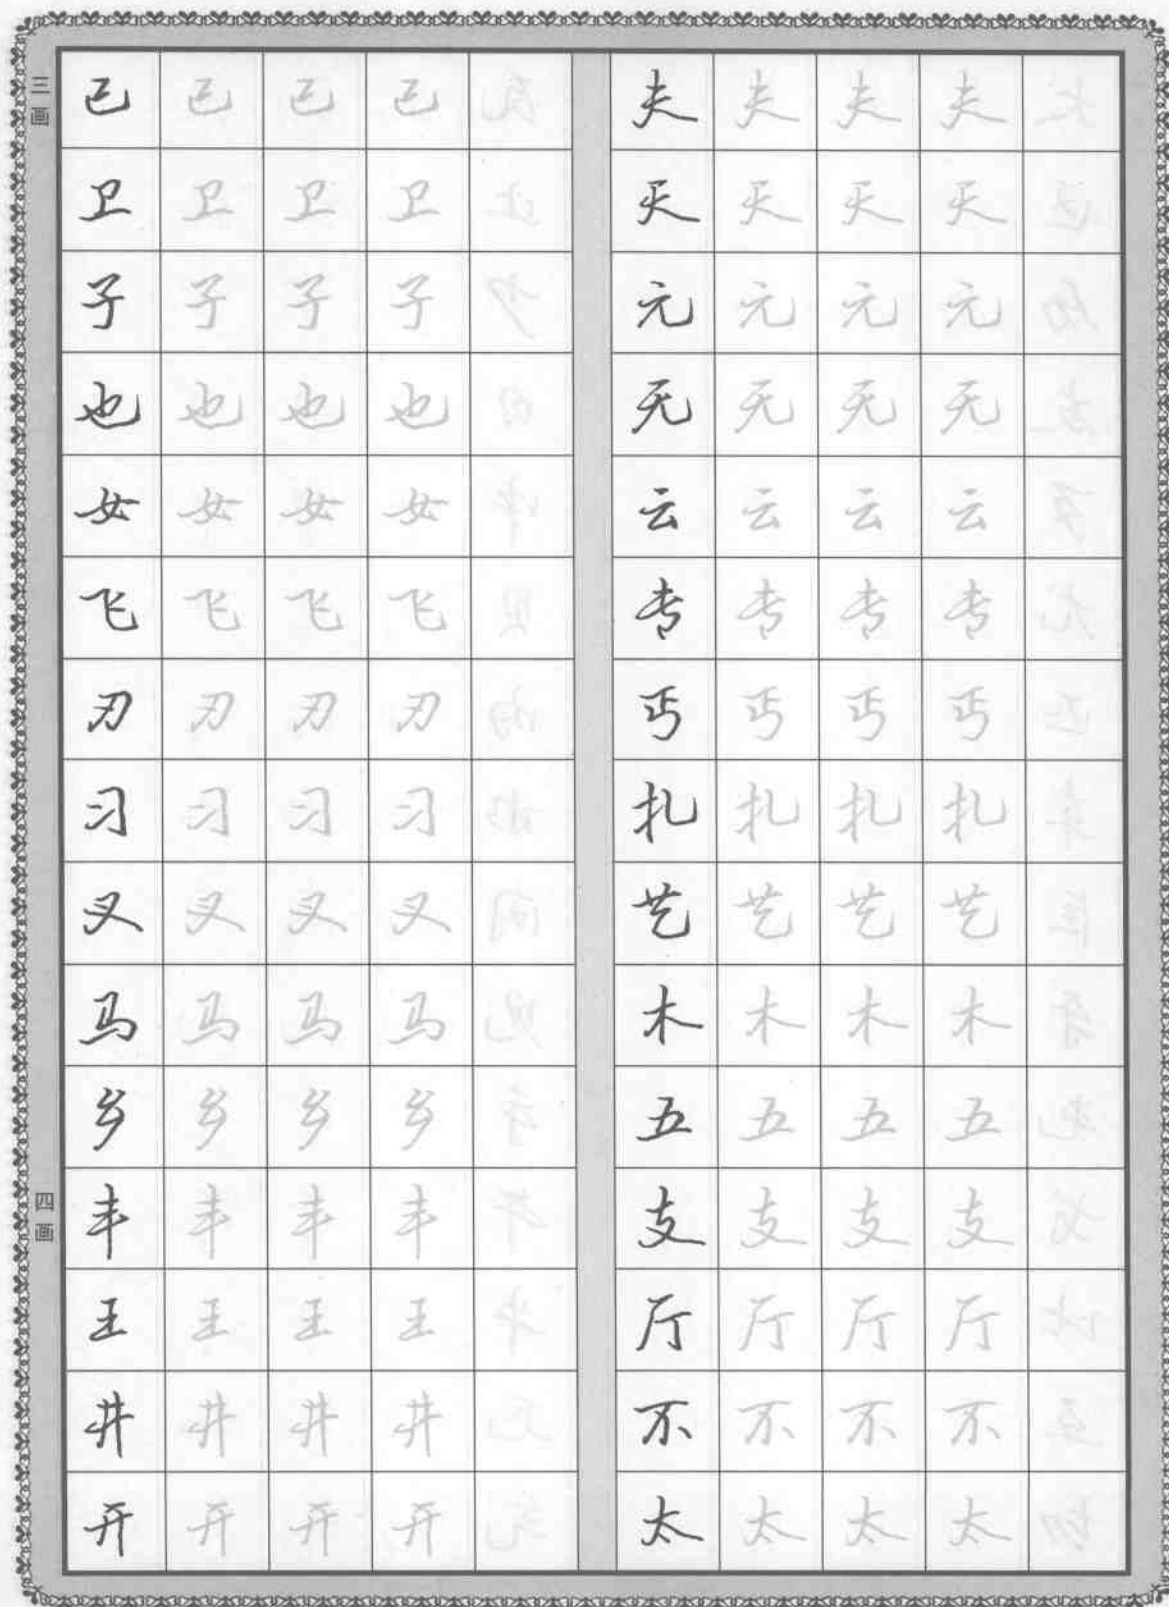 三画
已 已 已 已
卫 卫 卫 卫
子 子 子 子
也 也 也 也
女 女 女 女
飞 飞 飞 飞
刃 刃 刃 刃
习 习 习 习
叉 叉 叉 叉
马 马 马 马
乡 乡 乡 乡
四画
丰 丰 丰 丰
王 王 王 王
井 井 井 井
开 开 开 开
夫 夫 夫 夫
天 天 天 天
元 元 元 元
无 无 无 无
云 云 云 云
专 专 专 专
丐 丐 丐 丐
扎 扎 扎 扎
艺 艺 艺 艺
木 木 木 木
五 五 五 五
支 支 支 支
厅 厅 厅 厅
不 不 不 不
太 太 太 太